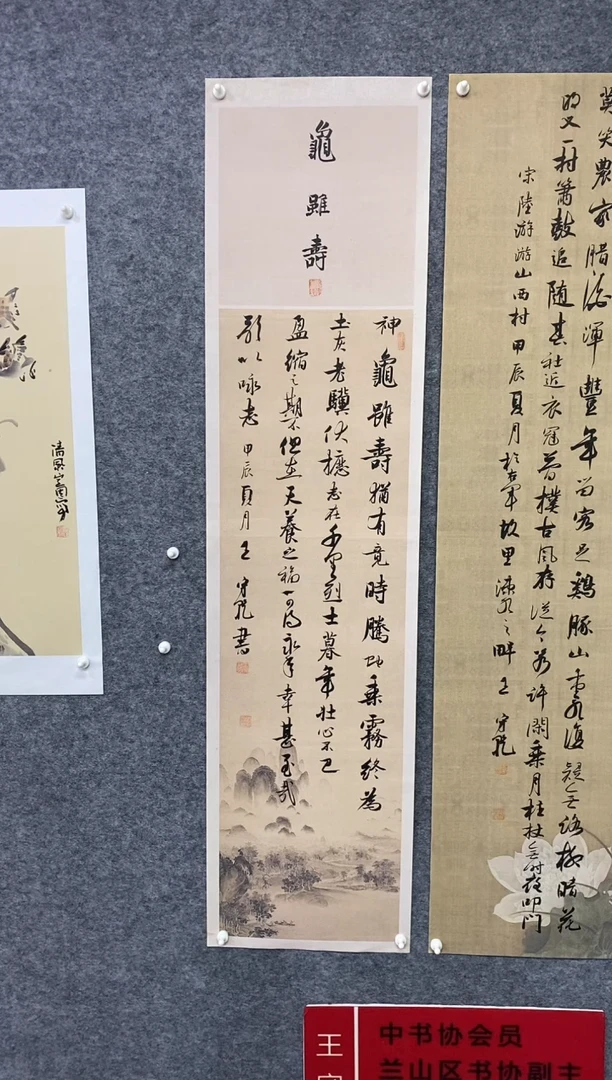 龜雖壽
神龜雖壽猶有竟時騰蛇乘霧終為
土灰老驥伏櫪志在千里烈士暮年壯心不已
盈縮之期不但在天養之福一可得永年幸甚至哉
歌以咏志 甲辰夏月王守乾書
莫笑農家臘酒渾豐年留客足鷄豚山重水復疑無路柳暗花
明又一村簫鼓追隨春社近衣冠簡樸古風存從今若許閑乘月拄杖無時夜叩門
宋陸游游山西村甲辰夏月於右軍故里涑河之畔王守乾
清風
王守
中书协会员
兰山区书协副主